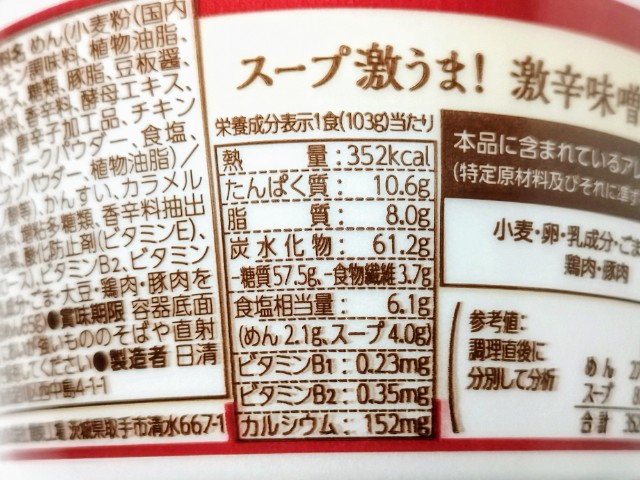 名 めん(小麦粉(国内
調味料、植物油脂、
糖類、豚脂、豆板醤、
香辛料、酵母エキス、
唐辛子加工品、チキン
ポークパウダー、食塩、
パウダー、植物油脂)/
かんすい、カラメル
増粘多糖類、香辛料抽出
酸化防止剤(ビタミンE)、
ビタミンB2、ビタミン
ごま・大豆・鶏肉・豚肉を
●賞味期限 容器底面
強いもののそばや直射
してください●製造者 日清
中島4-1-1
茨城県取手市清水667-1
スープ激うま! 激辛味噌
栄養成分表示1食(103g)当たり
熱量:352kcal
たんぱく質: 10.6g
脂質: 8.0g
炭水化物: 61.2g
-糖質57.5g、-食物繊維3.7g
食塩相当量: 6.1g
(めん 2.1g、スープ4.0g)
ビタミンB1: 0.23mg
ビタミンB2: 0.35mg
カルシウム: 152mg
本品に含まれているアレ
(特定原材料及びそれに準ず
小麦・卵・乳成分・ごま
鶏肉・豚肉
参考値:
調理直後に
分別して分析
めん
スープ
合計